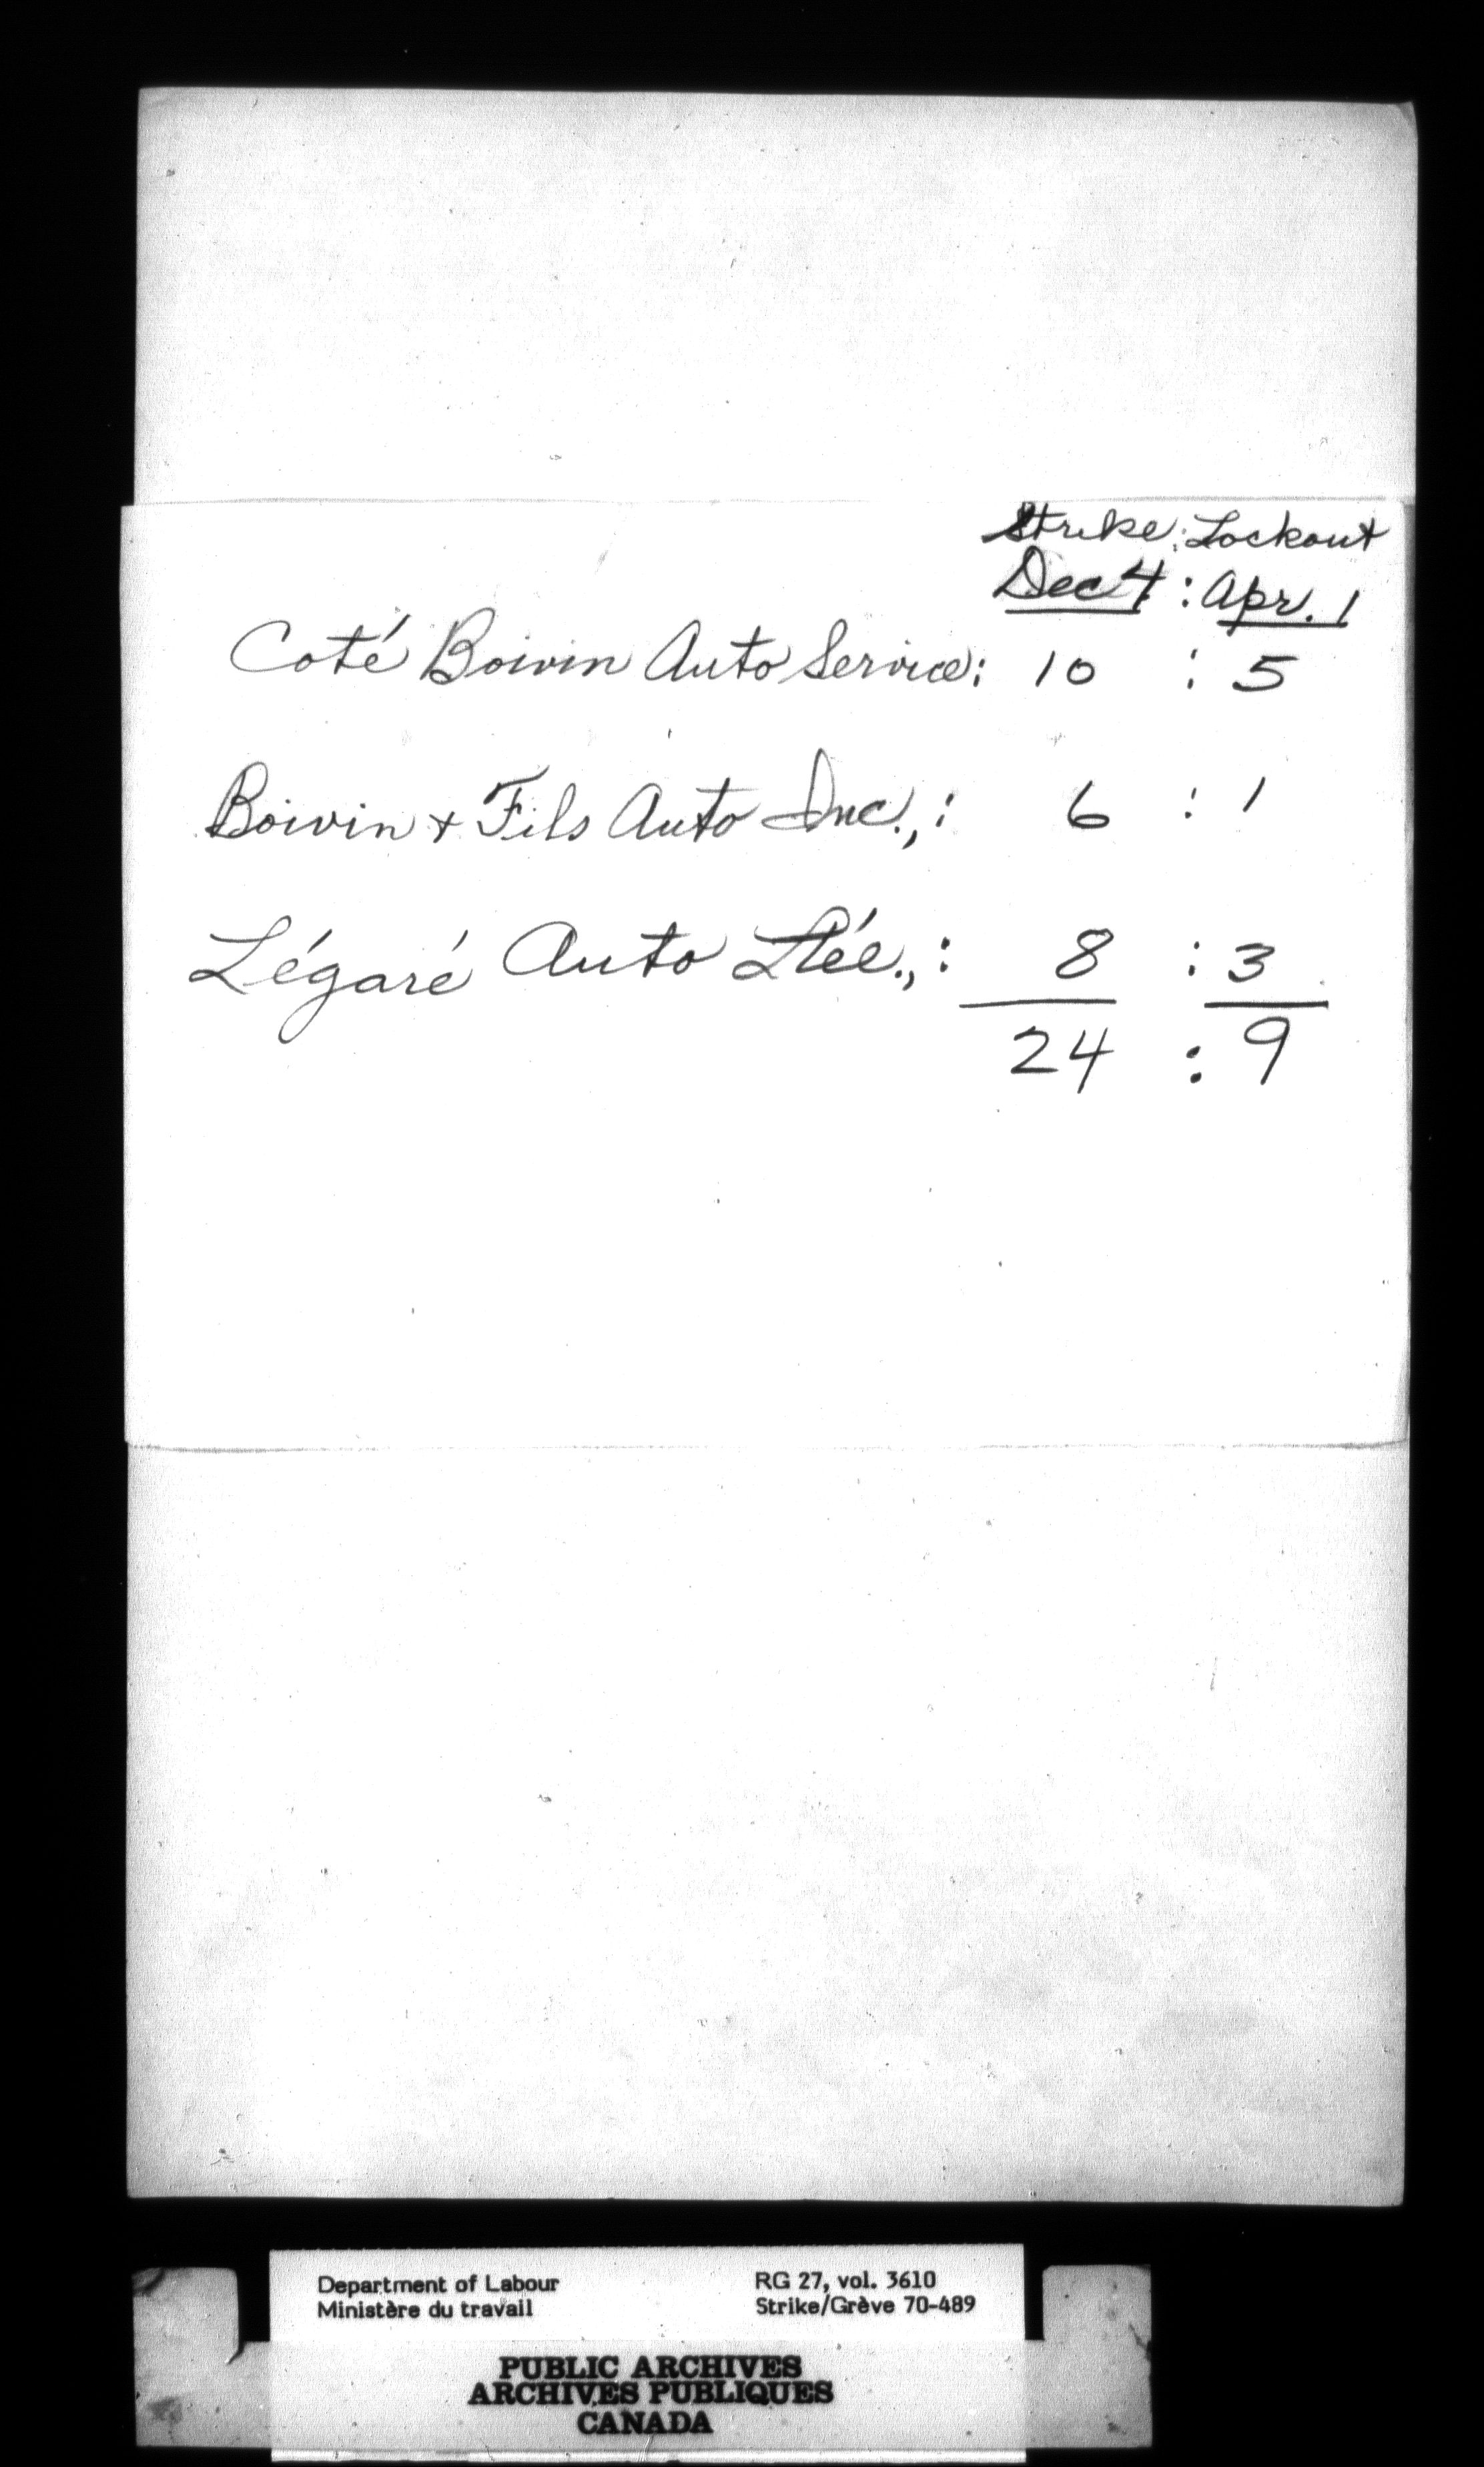 Strike : Lockout
Dec 4 : Apr. 1
Coté Boivin Auto Service : 10 : 5
Boivin + Fils Auto Inc., : 6 : 1
Légaré Auto Ltée., : 8 : 3
24 : 9
Department of Labour RG 27, vol. 3610
Ministère du travail Strike/Grève 70-489
PUBLIC ARCHIVES
ARCHIVES PUBLIQUES
CANADA